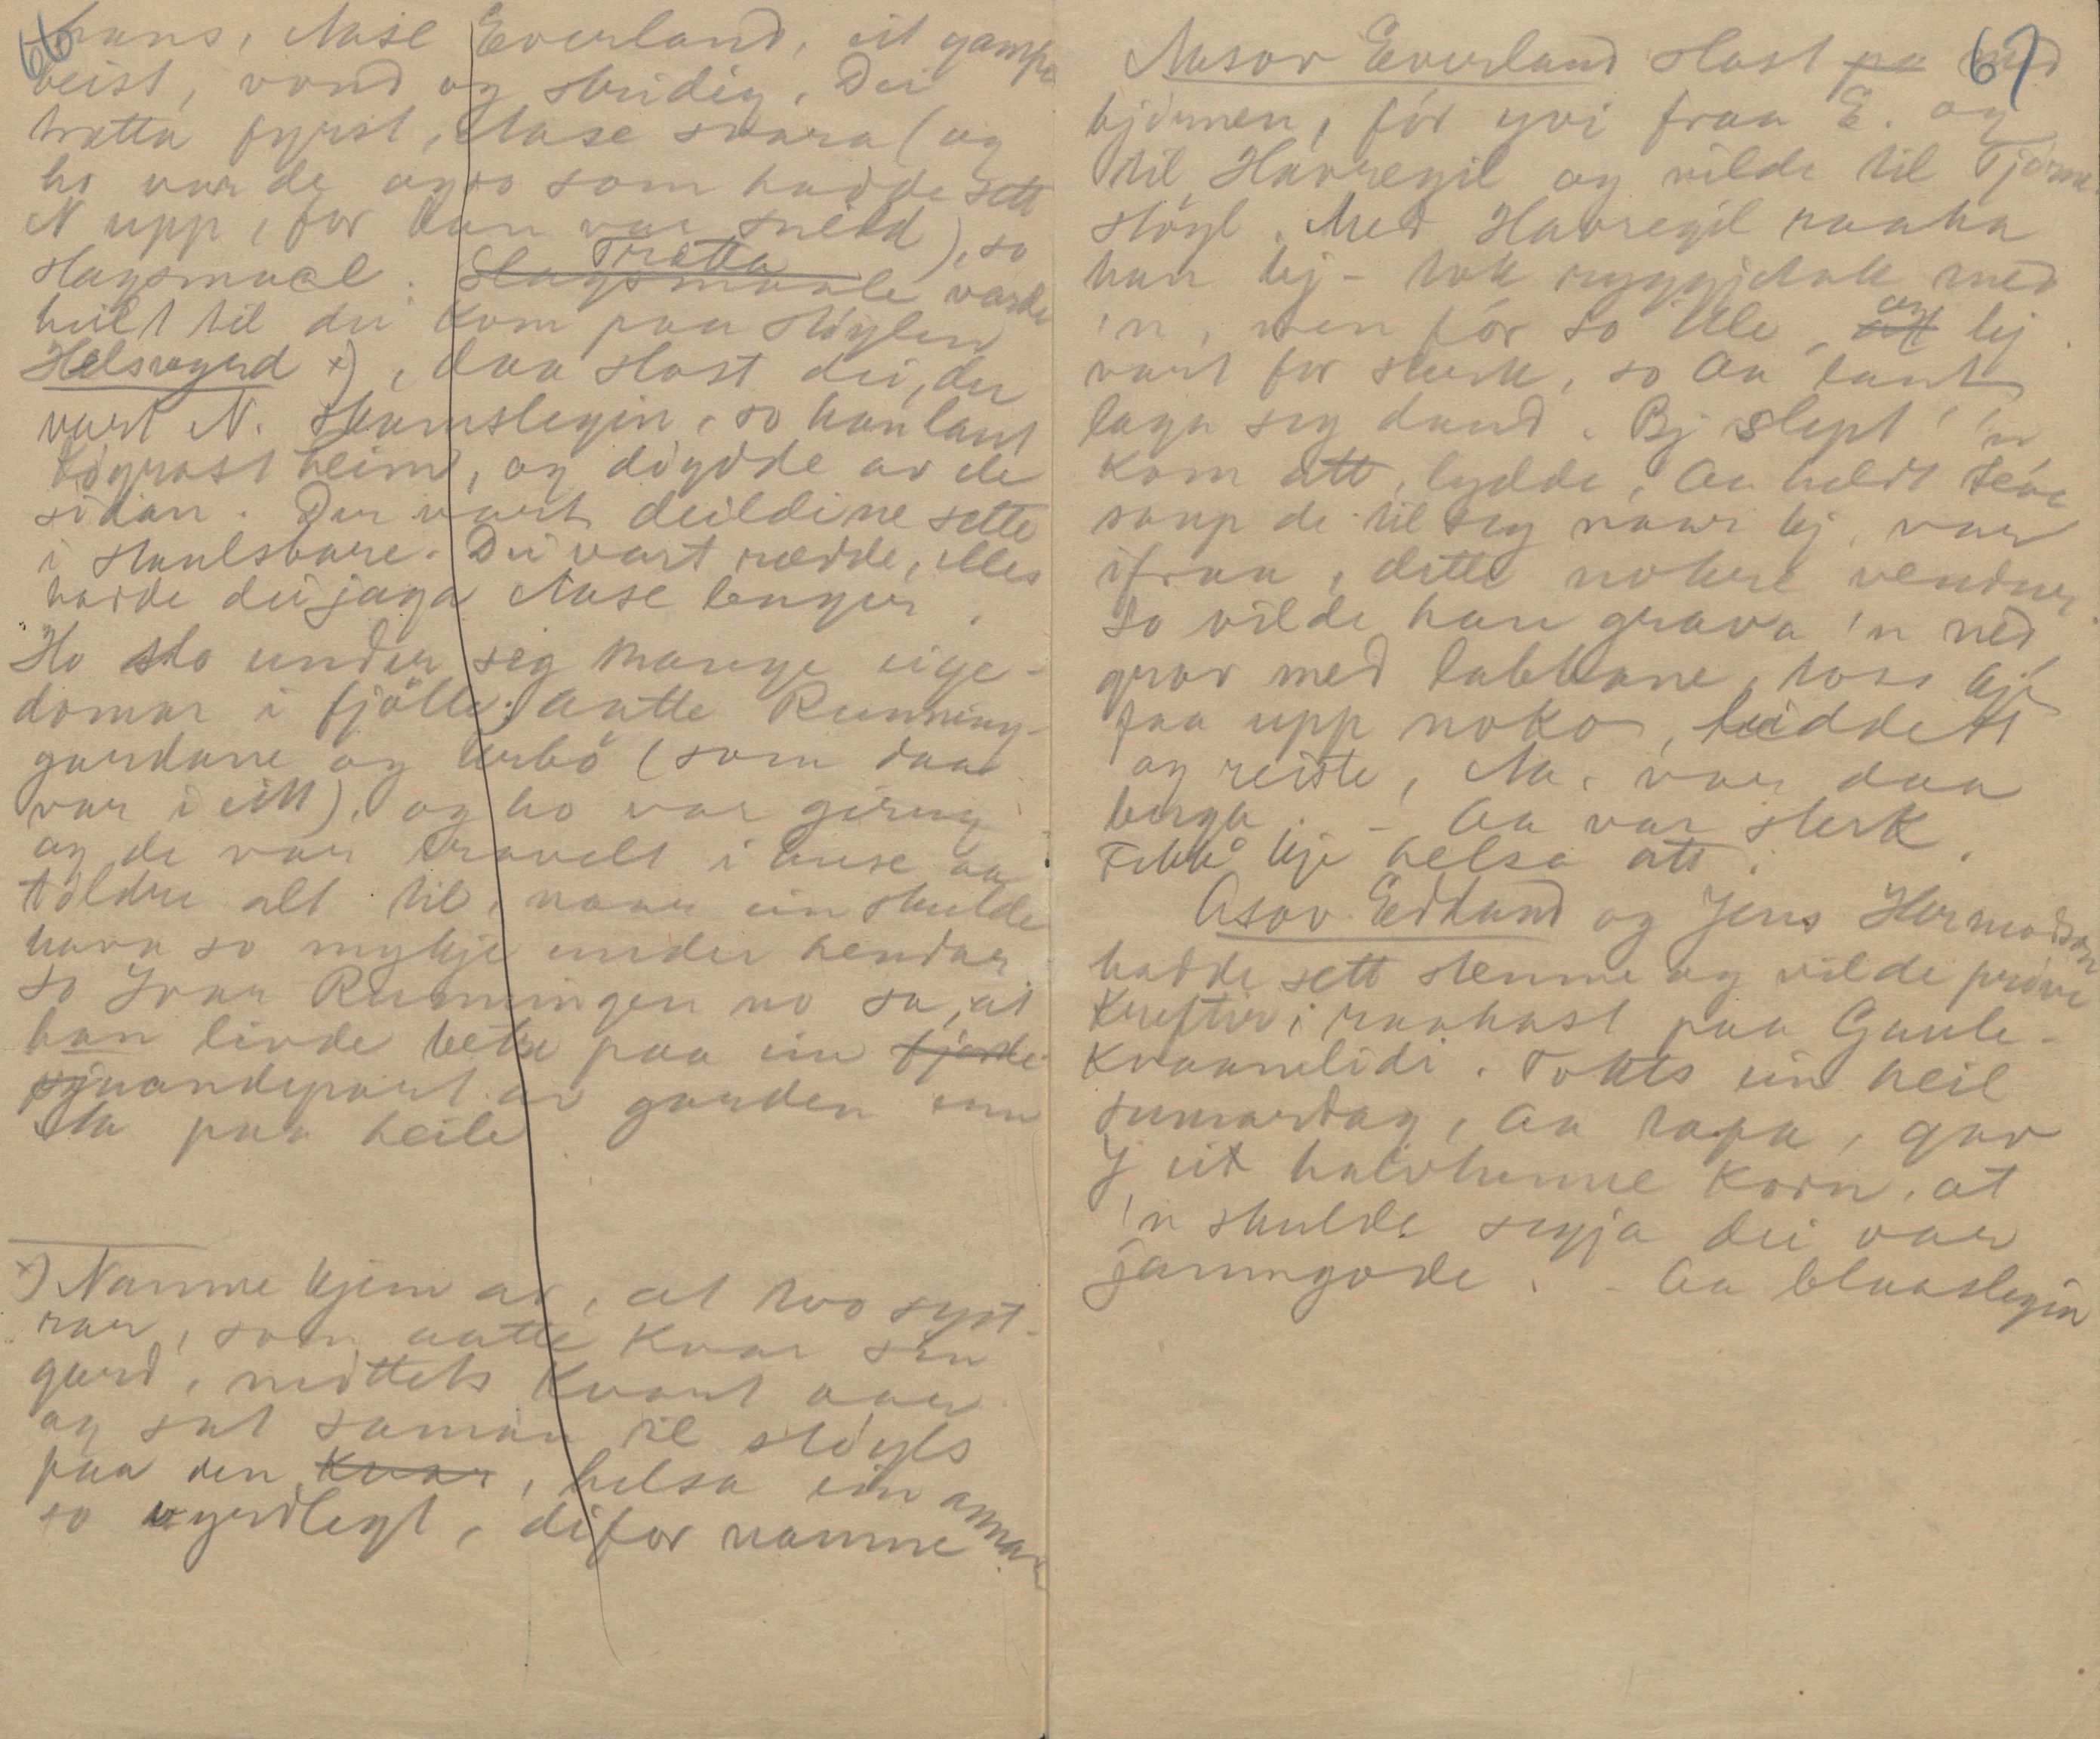 66
hans, Aase Everland, eit gampe
beist, vond og stridig. Dei
tratta fyrst, Aase svara (og
ho var de ogso som hadde sett
N upp, for han var snild), so
slagsmaal. Slagsmaale Tratta varde
heilt til dei kom paa stöylen
Helsvegerd x), daa slost dei, der
vart N. skamslegin, so han laut
heim, og döydde av de
sidan. Der vart deildine sette
i Skaulsbare. Dei vart rædde, elles
hadde dei jaga Aase lenger.
Ho slo under seg mange eige-
domar i fjölle; aatte Rumming-
gardane og Urbö (som daa
var i eitt), og ho var girug
og de var travelt i huse aa
toldre alt til, naar ein skulde
hava so mykje under hendar
so Ivar Rummingen no sa, at
han livde betre paa ein fjorde
sjuandepart av garden enn
Aa paa heile
x) Namne kjem av, at two syst-
rar, som aatte kvar sin
gard, mittets kvart aar
og sat saman til stöyls
paa den kvar, helsa ein annan
so vyrdlegt, difor namne
67
Aasov Everland slost pa med
björnen, fór yvi fraa E. og
til Havregil og vilde til Tjörnn
stöyl. Med Havregil raaka
han bj- tok ryggjetak med
'n, men fór so ille, att og bj
vart for sterk, so Aa laut
laga seg daud. Bj slept' 'n
kom att, lydde, Aa heldt
saup de til seg naar bj. var
ifraa, dette nokre vendur
So vilde han grava 'n ned
grov med labbane, tass bje
faa upp noko, leidde tt
og reiste, Aa. var daa
berga. - Aa var sterk.
Fekk bje helsa att.
Asov Edland og Jens Hermodson
hadde sett stemne og vilde pröve
krefter i raakast paa Gaule-
kvaamlidi. Tokts ein heil
sumardag, Aa tapa, gav
J eit halvtunne korn, at
'n skulde segja dei var
jamngode. - Aa blaaslegin